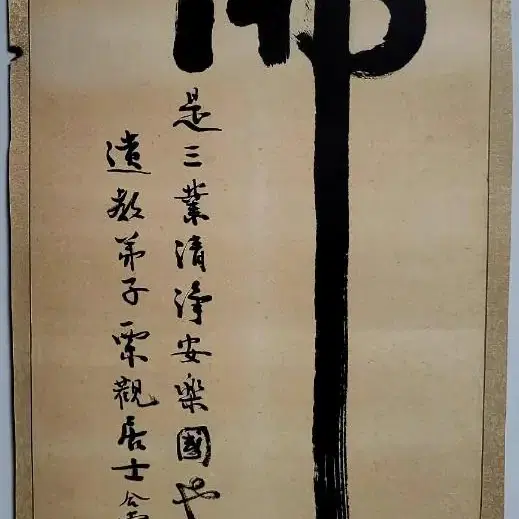 佛
是三業清淨安樂國也
遺教弟子栗觀居士